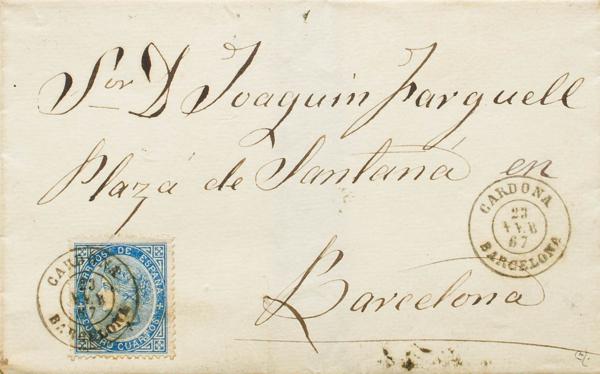 Sor D Joaquin Farguell
Plaza de Santaná en
Barcelona
CARDONA
23
FEB
67
BARCELONA
CORREOS DE ESPAÑA
CUATRO CUARTOS
BARCELONA